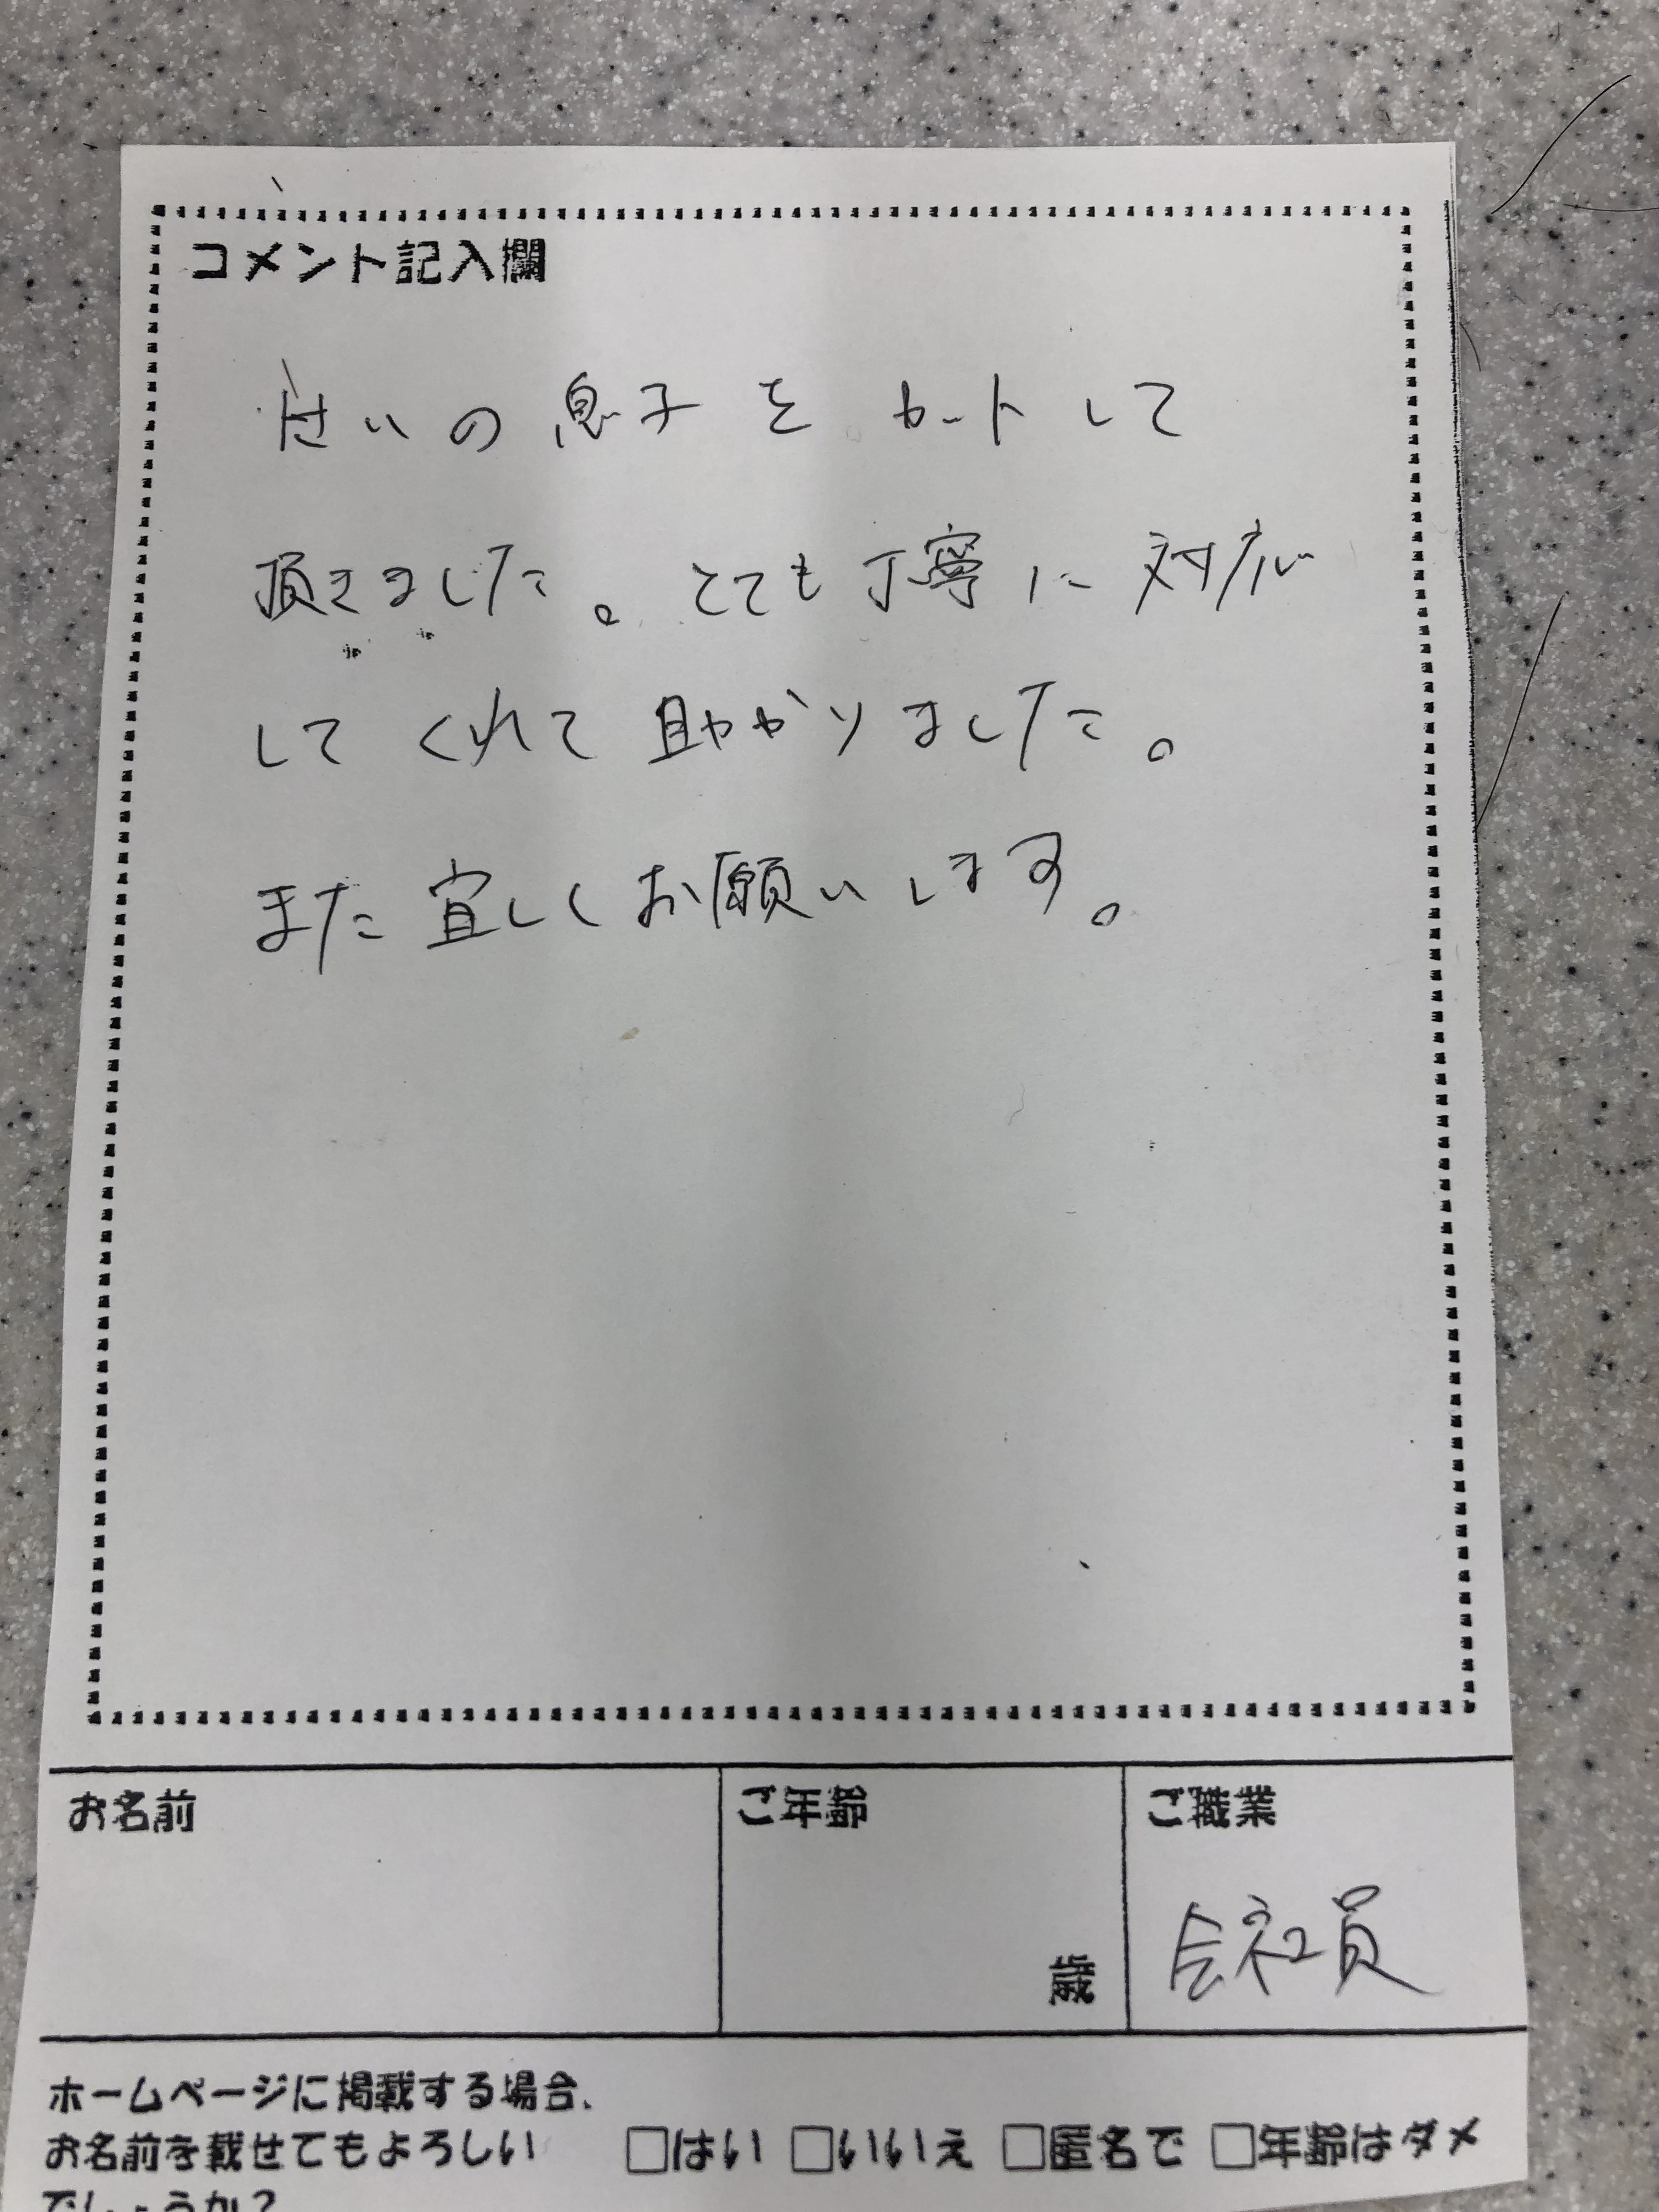 コメント記入欄
せいの息子をカットして
頂きました。とても丁寧に対応
してくれて助かりました。
また宜しくお願いします。
お名前
ご年齢
ご職業
歳
会社員
ホームページに掲載する場合、
お名前を載せてもよろしい
□はい □いいえ □匿名で □年齢はダメ
でしょうか?